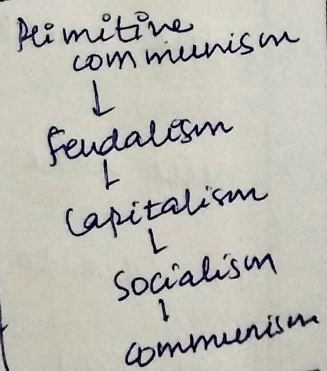 Primitive
communism
↓
Feudalism
↓
Capitalism
↓
Socialism
↓
communism